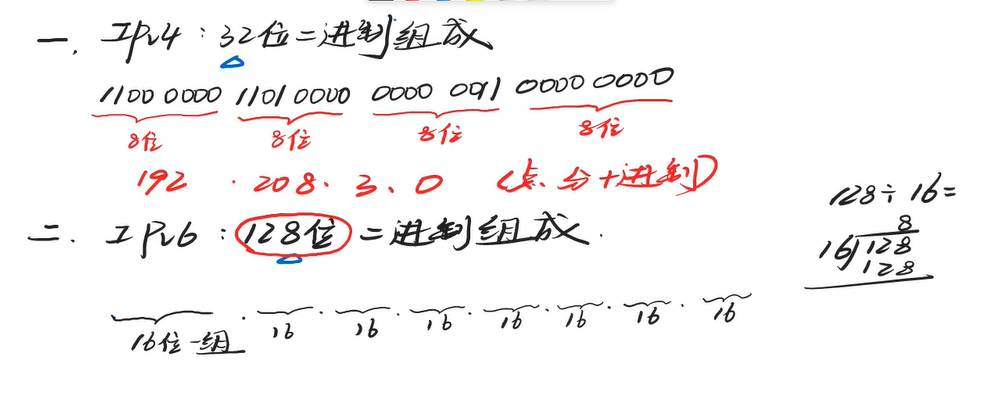 一. IPv4：32位二进制组成
1100 0000 1101 0000 0000 0011 0000 0000
8位 8位 8位 8位
192 . 208 . 3 . 0 (点分十进制)
二. IPv6：128位二进制组成.
16位一组 . 16 . 16 . 16 . 16 . 16 . 16 . 16
128÷16=
8
16)128
128